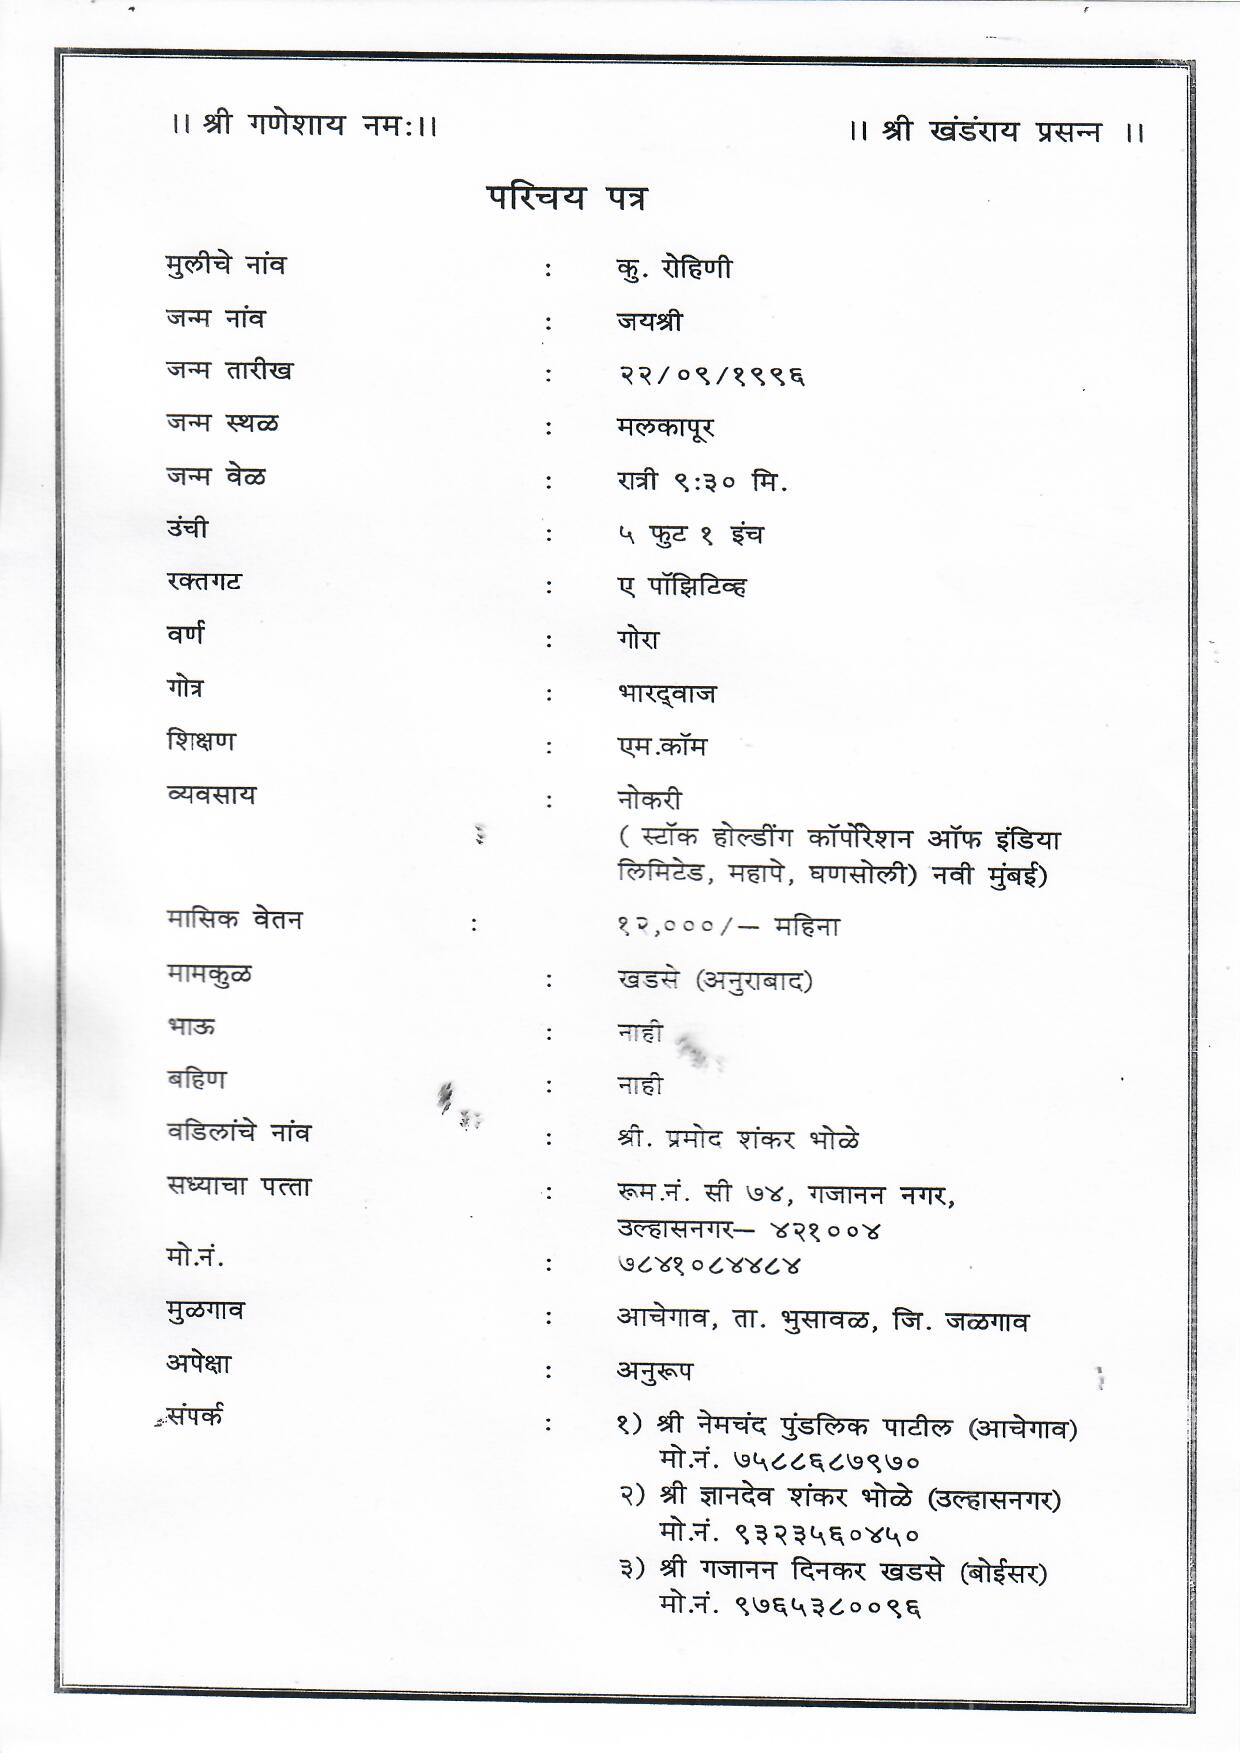 ।। श्री गणेशाय नमः।। ।। श्री खंडंराय प्रसन्न ।।
परिचय पत्र
मुलीचे नांव : कु. रोहिणी
जन्म नांव : जयश्री
जन्म तारीख : २२/०९/१९९६
जन्म स्थळ : मलकापूर
जन्म वेळ : रात्री ९:३० मि.
उंची : ५ फुट १ इंच
रक्तगट : ए पॉझिटिव्ह
वर्ण : गोरा
गोत्र : भारद्वाज
शिक्षण : एम.कॉम
व्यवसाय : नोकरी
( स्टॉक होल्डींग कॉर्पोरेशन ऑफ इंडिया
लिमिटेड, महापे, घणसोली) नवी मुंबई)
मासिक वेतन : १२,०००/— महिना
मामकुळ : खडसे (अनुराबाद)
भाऊ : नाही
बहिण : नाही
वडिलांचे नांव : श्री. प्रमोद शंकर भोळे
सध्याचा पत्ता : रूम.नं. सी ७४, गजानन नगर,
उल्हासनगर— ४२१००४
मो.नं. : ७८४१०८४४८४
मुळगाव : आचेगाव, ता. भुसावळ, जि. जळगाव
अपेक्षा : अनुरूप
संपर्क : १) श्री नेमचंद पुंडलिक पाटील (आचेगाव)
मो.नं. ७५८८६८७९७०
२) श्री ज्ञानदेव शंकर भोळे (उल्हासनगर)
मो.नं. ९३२३५६०४५०
३) श्री गजानन दिनकर खडसे (बोईसर)
मो.नं. ९७६५३८००९६